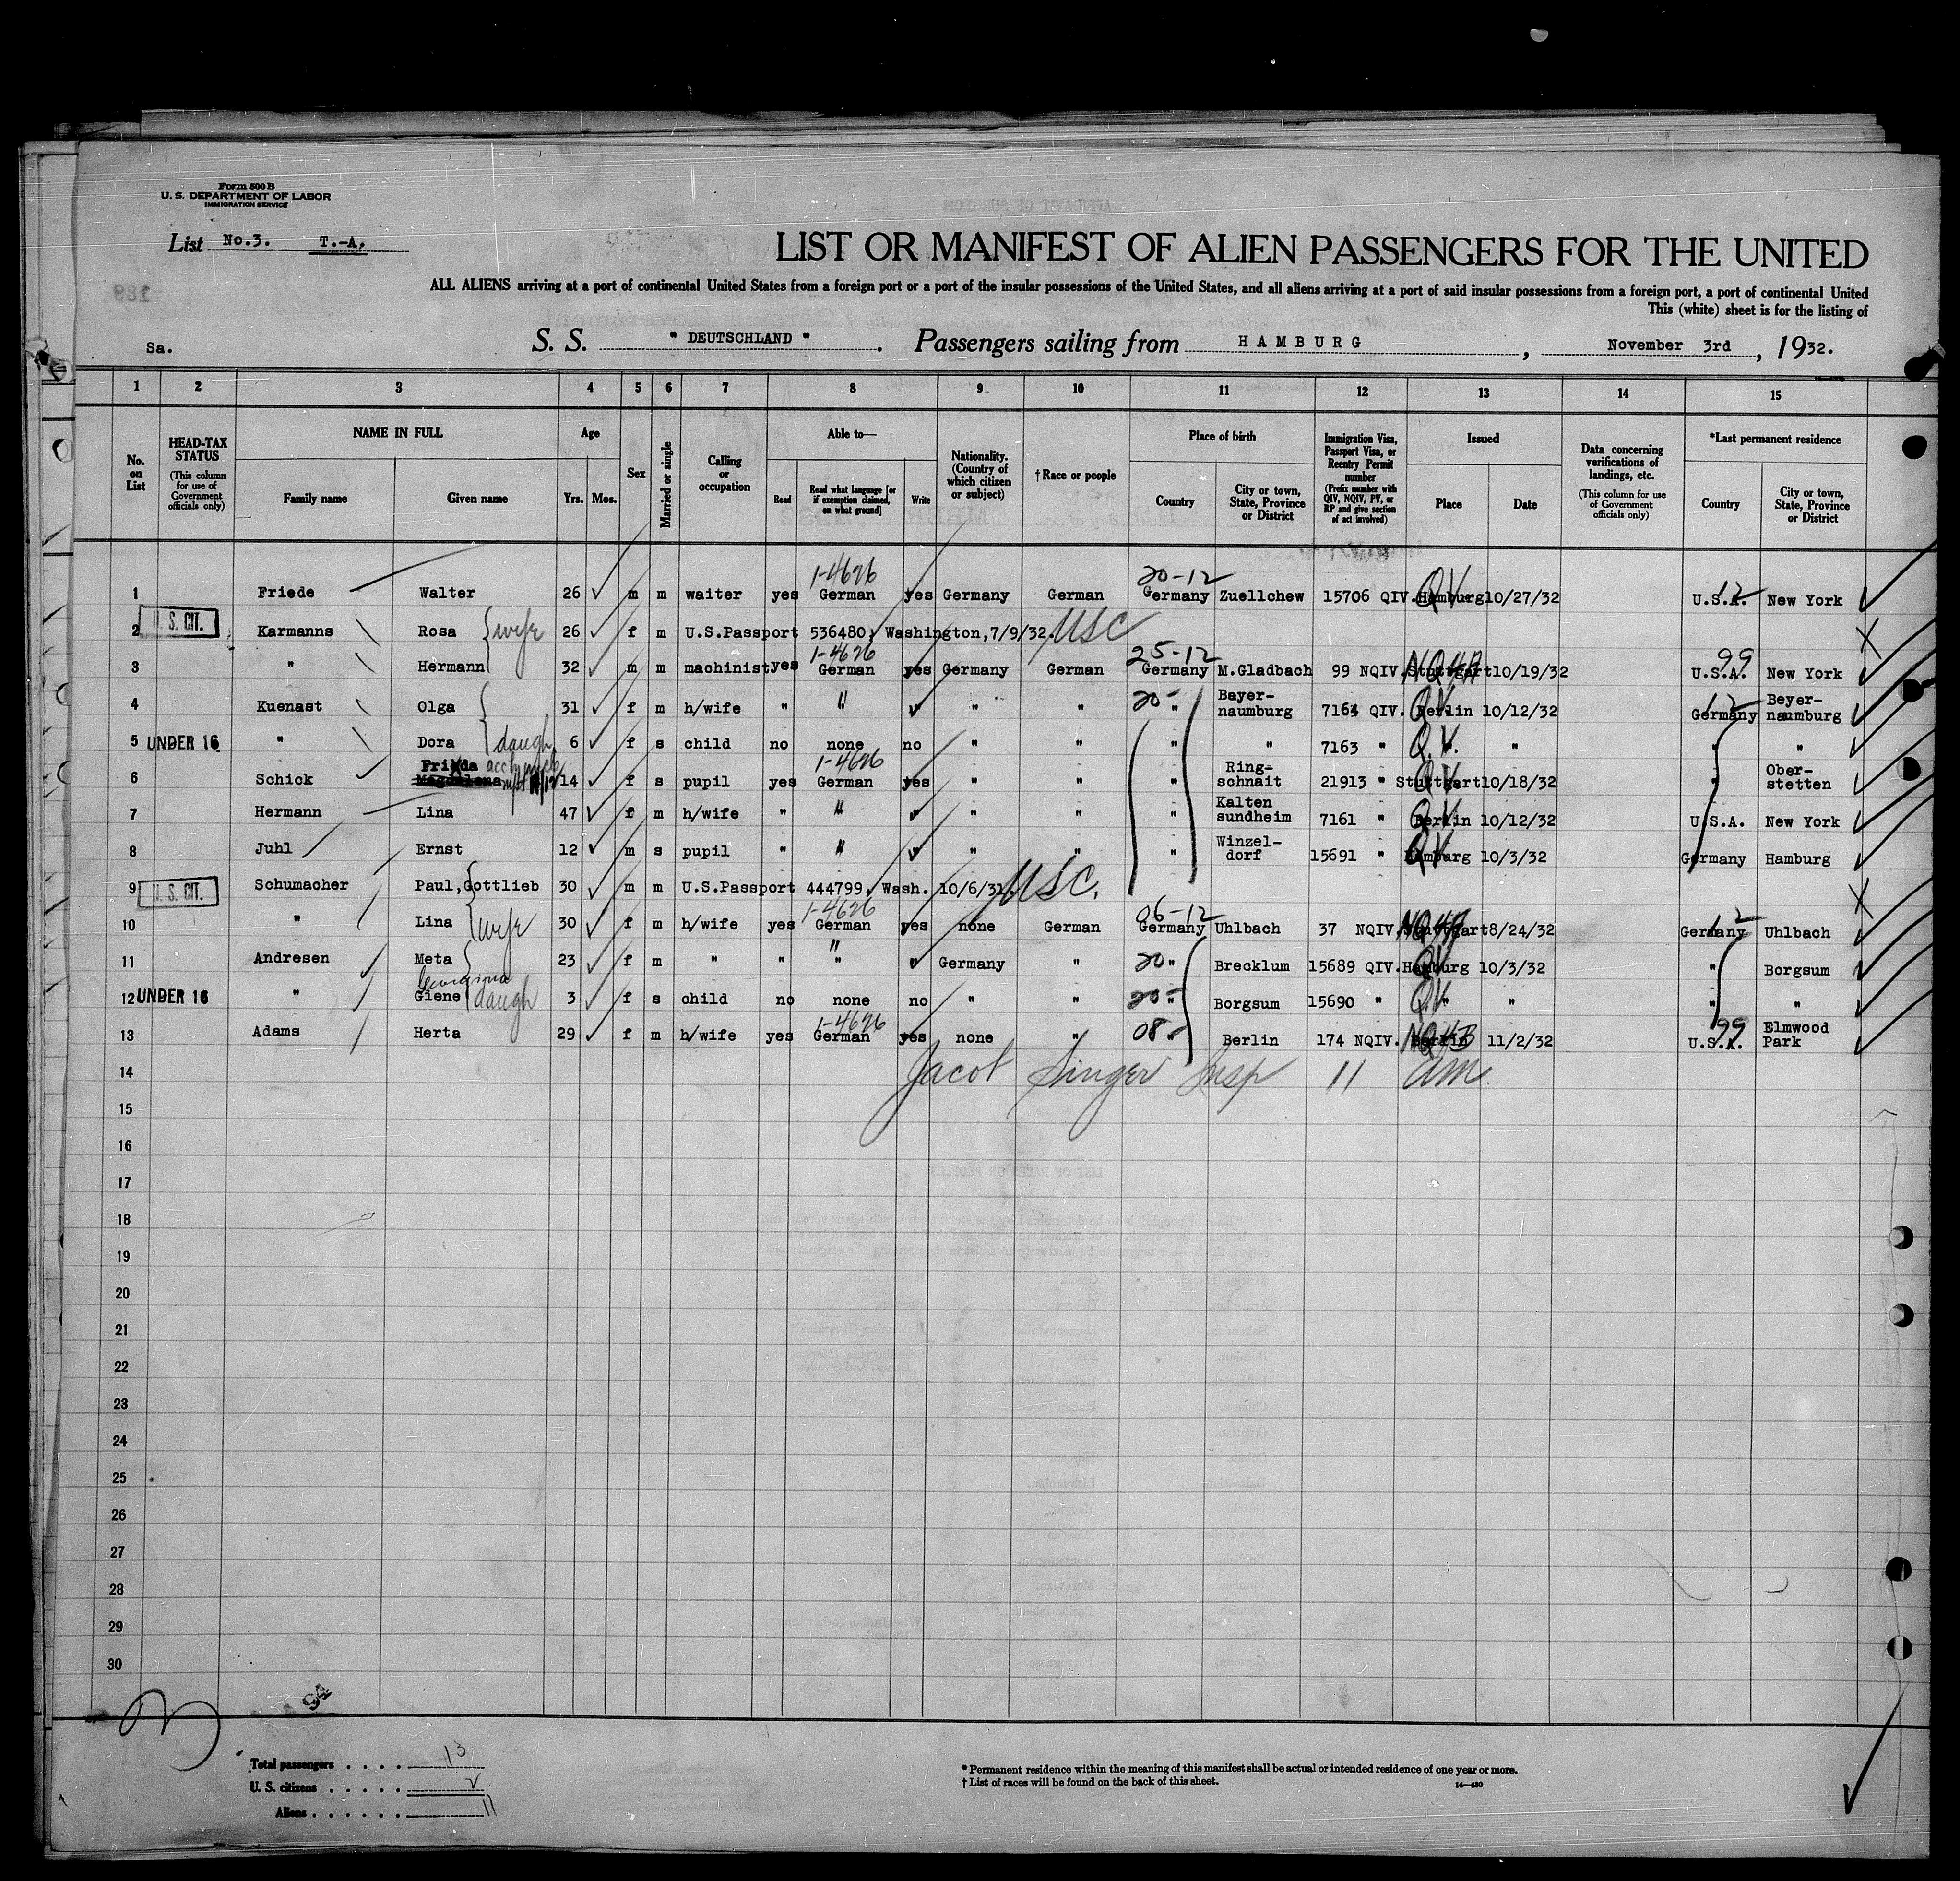 Form 500 B
U. S. DEPARTMENT OF LABOR
IMMIGRATION SERVICE
List No.3. T.-A.
LIST OR MANIFEST OF ALIEN PASSENGERS FOR THE UNITED
ALL ALIENS arriving at a port of continental United States from a foreign port or a port of the insular possessions of the United States, and all aliens arriving at a port of said insular possessions from a foreign port, a port of continental United
This (white) sheet is for the listing of
Sa. S. S. " DEUTSCHLAND " . Passengers sailing from HAMBURG , November 3rd , 1932.
1 2 3 4 5 6 7 8 9 10 11 12 13 14 15
No. on List
HEAD-TAX STATUS (This column for use of Government officials only)
NAME IN FULL Family name Given name
Age Yrs. Mos.
Sex
Married or single
Calling or occupation
Able to— Read Read what language [or if exemption claimed, on what ground] Write
Nationality. (Country of which citizen or subject)
† Race or people
Place of birth Country City or town, State, Province or District
Immigration Visa, Passport Visa, or Reentry Permit number (Prefix number with QIV, NQIV, PV, or RP and give section of act involved)
Issued Place Date
Data concerning verifications of landings, etc. (This column for use of Government officials only)
*Last permanent residence Country City or town, State, Province or District
1-4626 20-12
1 Friede Walter 26 m m waiter yes German yes Germany German Germany Zuellchew 15706 QIV. Hamburg 10/27/32 QV 12 U.S.A. New York
2 U. S. CIT. Karmanns Rosa wife 26 f m U.S.Passport 536480, Washington, 7/9/32. USC X
1-4626 25-12 99
3 " Hermann 32 m m machinist yes German yes Germany German Germany M.Gladbach 99 NQIV. Stuttgart 10/19/32 U.S.A. New York
4 Kuenast Olga 31 f m h/wife " " " " " 20- " Bayer-naumburg 7164 QIV. Berlin 10/12/32 QV 12 Germany Beyer-naumburg
5 UNDER 16 " Dora daugh 6 f s child no none no " " " " 7163 " " " Q.V. " "
Frieda 1-4626
6 Schick 14 f s pupil yes German yes " " " Ring-schnait 21913 " Stuttgart 10/18/32 QV " Ober-stetten
7 Hermann Lina 47 f m h/wife " " " " " " Kalten sundheim 7161 " Berlin 10/12/32 QV U.S.A. New York
8 Juhl Ernst 12 m s pupil " " " " " " Winzel-dorf 15691 " Hamburg 10/3/32 QV Germany Hamburg
9 U. S. CIT. Schumacher Paul, Gottlieb 30 m m U.S.Passport 444799, Wash. 10/6/31. USC. X
1-4626 06-12
10 " Lina wife 30 f m h/wife yes German yes none German Germany Uhlbach 37 NQIV. Stuttgart 8/24/32 12 Germany Uhlbach
11 Andresen Meta 23 f m " " " " Germany " 20 " Brecklum 15689 QIV. Hamburg 10/3/32 QV " Borgsum
Georgina
12 UNDER 16 " Giene daugh 3 f s child no none no " " 20- " Borgsum 15690 " " " Q.V. " "
1-4626
13 Adams Herta 29 f m h/wife yes German yes none " 08- " Berlin 174 NQIV. Berlin 11/2/32 99 U.S.A. Elmwood Park
14 Jacob Singer Insp 11 am
15
16
17
18
19
20
21
22
23
24
25
26
27
28
29
30
94
Total passengers . . . . 13
U. S. citizens . . . . . 2
Aliens . . . . . 11
* Permanent residence within the meaning of this manifest shall be actual or intended residence of one year or more.
† List of races will be found on the back of this sheet.
14—430